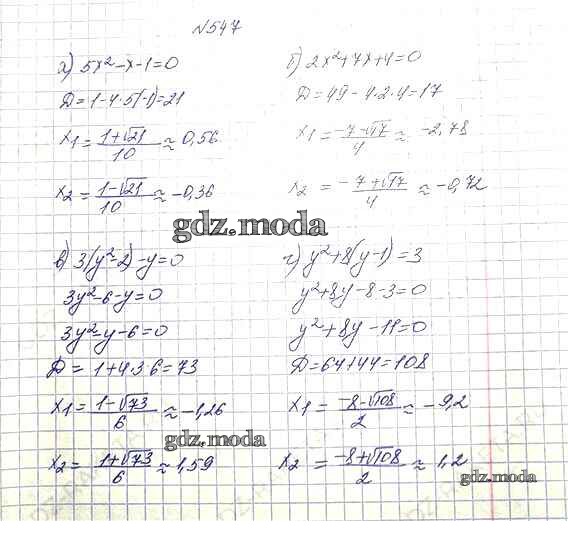 N547
а) 5x²-x-1=0
D=1-4·5(-1)=21
x1=(1+√21)/10≈0,56
x2=(1-√21)/10≈-0,36
б) 2x²+7x+4=0
D=49-4·2·4=17
x1=(-7-√17)/4≈-2,78
x2=(-7+√17)/4≈-0,72
gdz.moda
в) 3(y²-2)-y=0
3y²-6-y=0
3y²-y-6=0
D=1+4·3·6=73
x1=(1-√73)/6≈-1,26
x2=(1+√73)/6≈1,59
gdz.moda
г) y²+8(y-1)=3
y²+8y-8-3=0
y²+8y-11=0
D=64+44=108
x1=(-8-√108)/2≈-9,2
x2=(-8+√108)/2≈1,2
gdz.moda